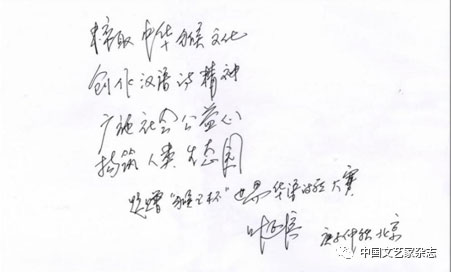 取中华猴文化
创作汉语诗精神
广施社会公益心
构筑人类生态园
题赠“猴王杯”世界华语诗歌大赛
叶延滨 庚子仲秋北京
中国文艺家杂志